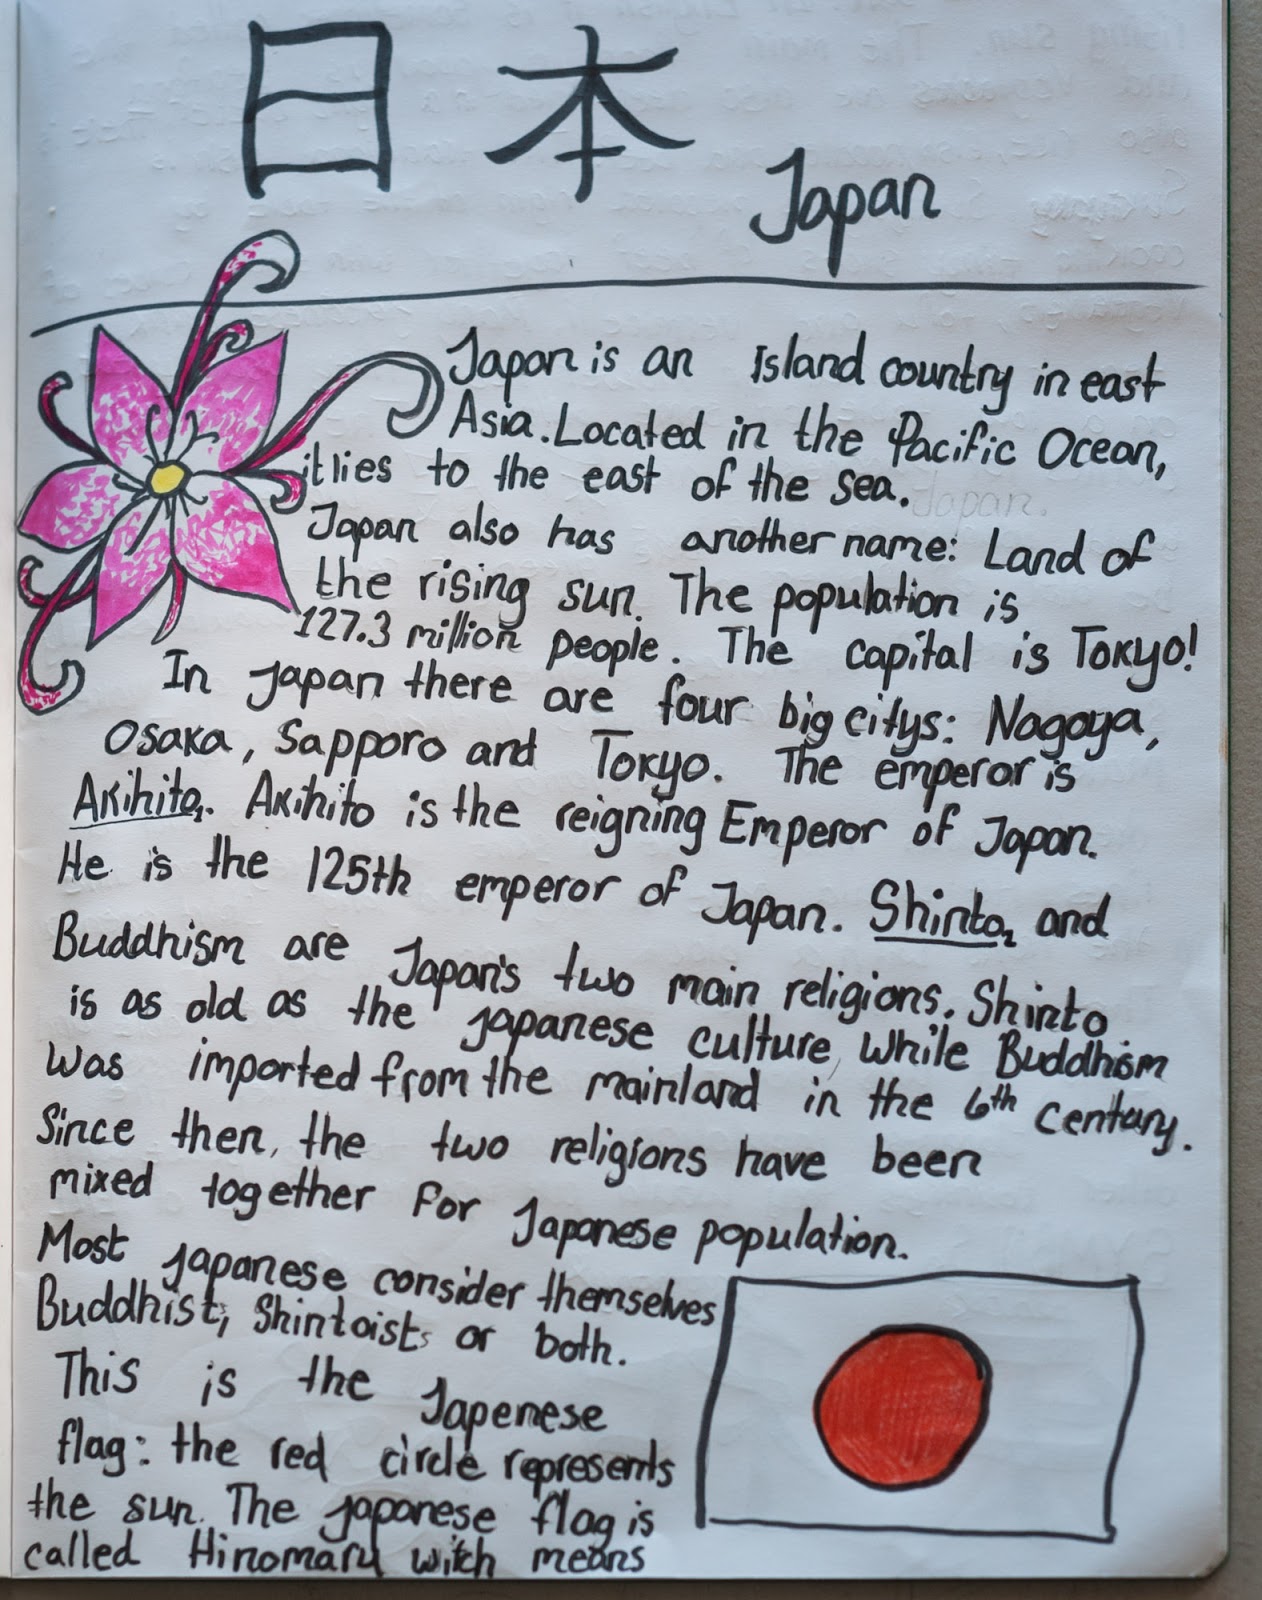 日本
Japan
Japan is an Island country in east
Asia. Located in the Pacific Ocean,
it lies to the east of the sea.
Japan.
Japan also has another name: Land of
the rising sun. The population is
127.3 million people. The capital is Tokyo!
In japan there are four big citys: Nagoya,
Osaka, Sapporo and Tokyo. The emperor is
Akihito1. Akihito is the reigning Emperor of Japan.
He is the 125th emperor of Japan. Shinto2 and
Buddhism are Japan's two main religions. Shinto
is as old as the japanese culture, while Buddhism
was imported from the mainland in the 6th century.
Since then, the two religions have been
mixed together for Japanese population.
Most japanese consider themselves
Buddhist, Shintoists or both.
This is the Japenese
flag: the red circle represents
the sun. The japanese flag is
called Hinomaru witch means